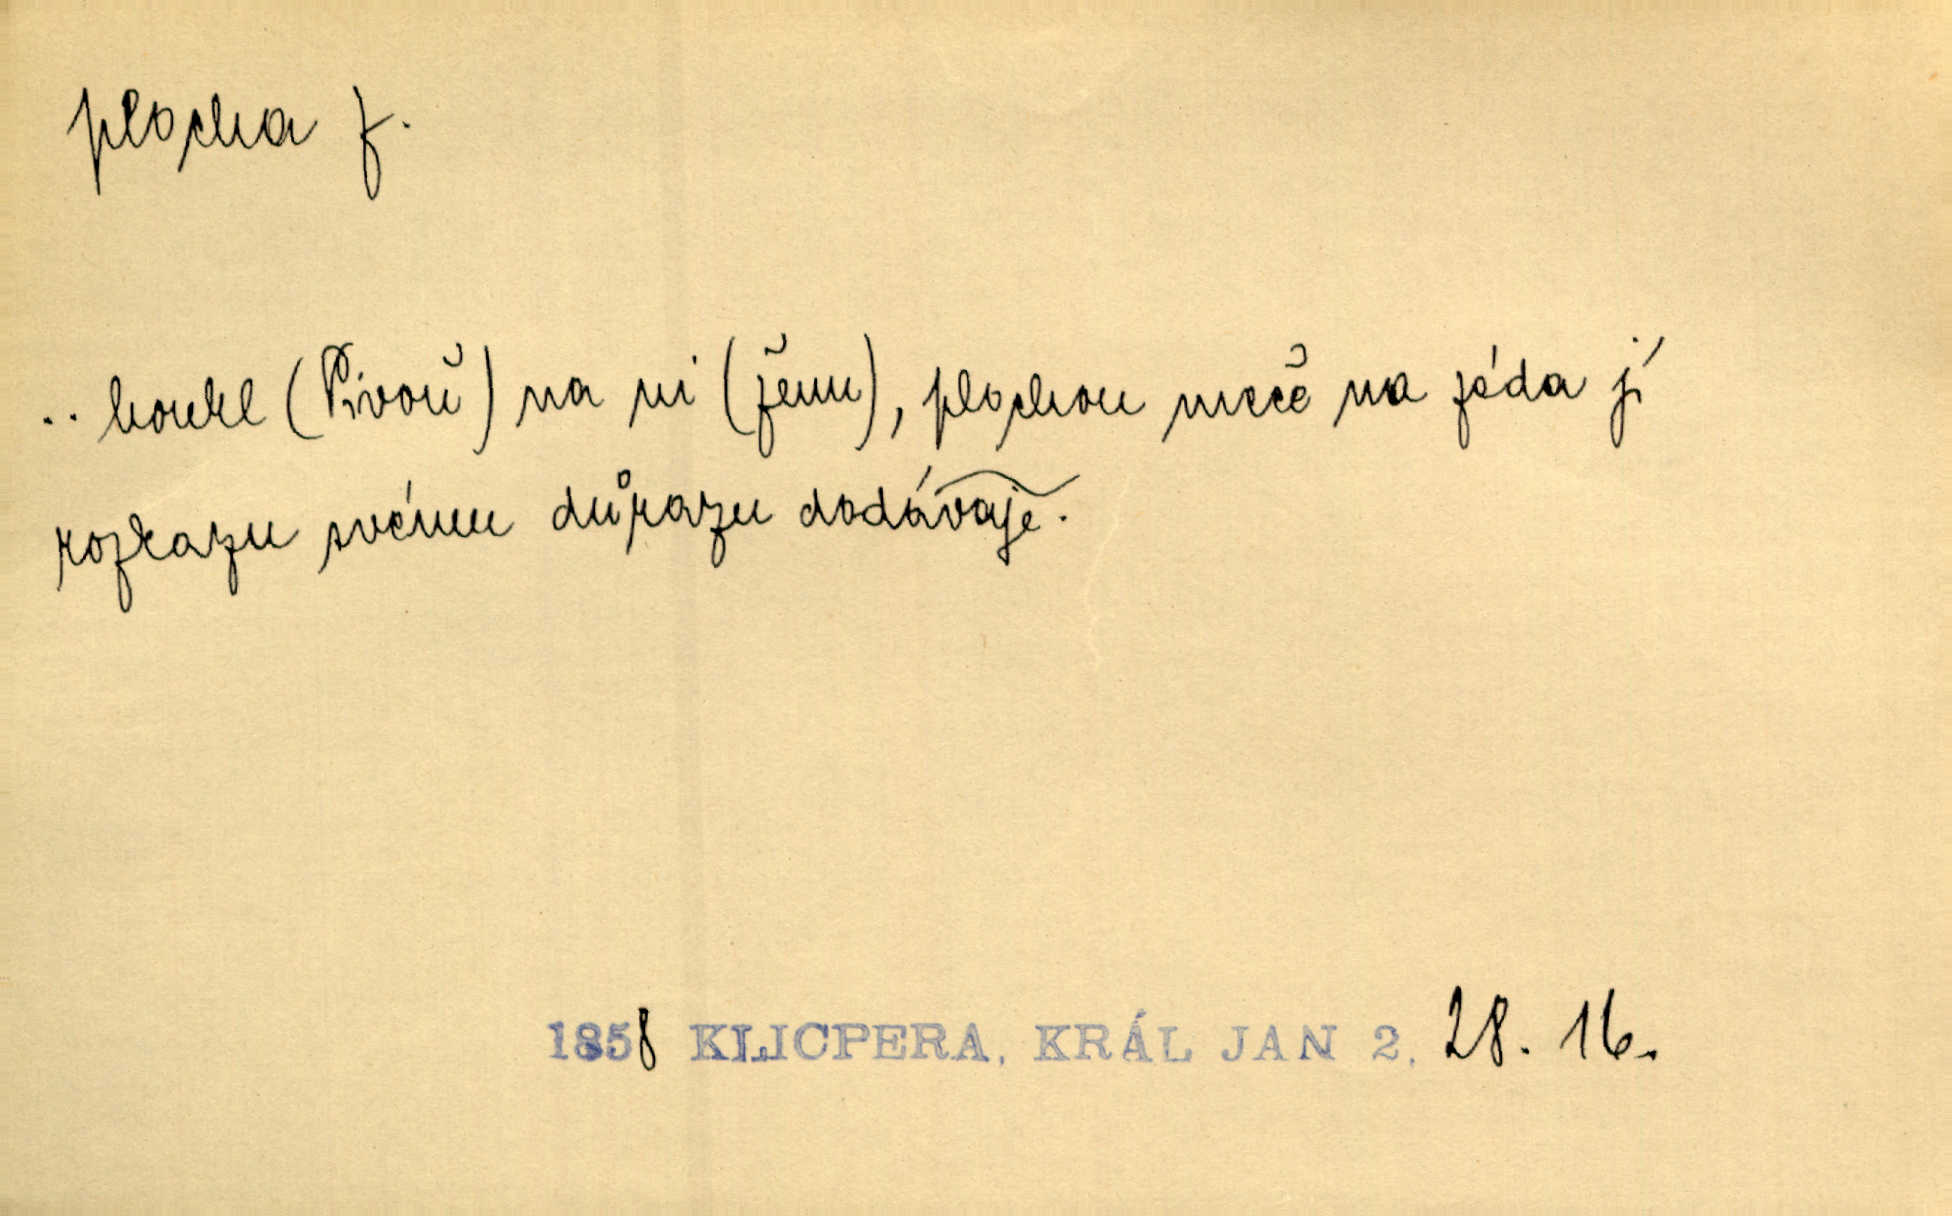 plocha f.
.. houkl (Pivoň) na ni (ženu), plochou meče na záda jí
rozkazu svému důrazu dodávaje.
1858 KLICPERA, KRÁL JAN 2, 28. 16.